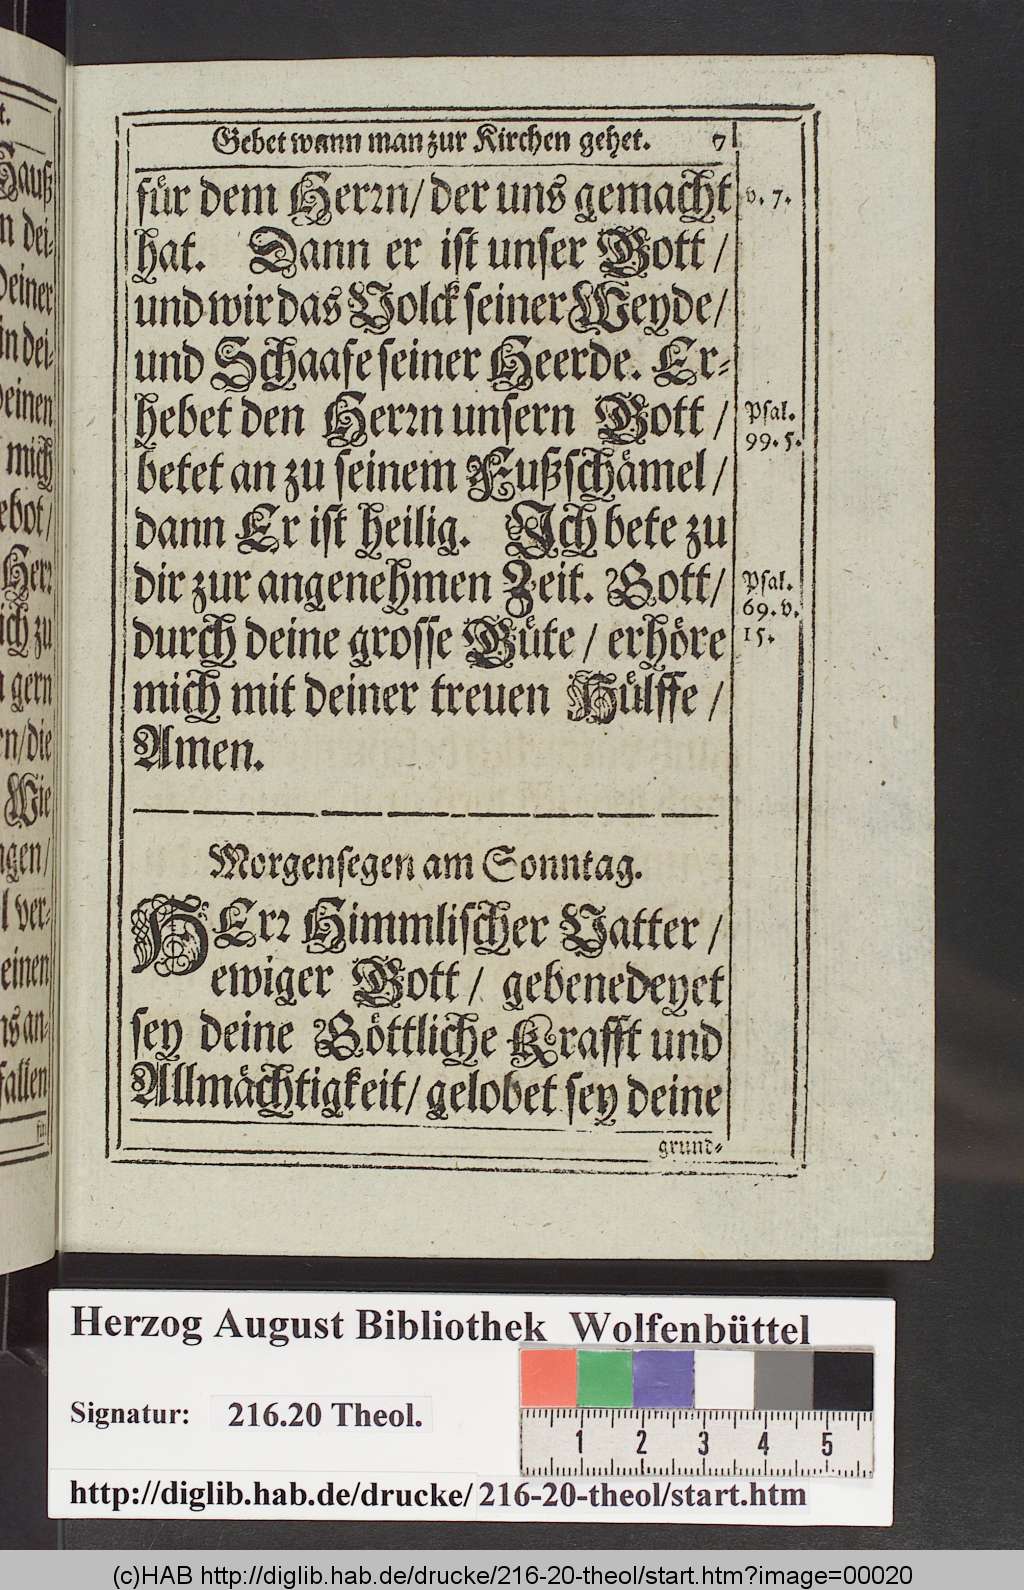 Gebet wann man zur Kirchen gehet. 7
für dem Herꝛn/ der uns gemacht
v. 7.
hat. Dann er ist unser Gott /
und wir das Volck seiner Weyde/
und Schaafe seiner Heerde. Er-
hebet den Herꝛn unsern Gott /
Psal.
99. 5.
betet an zu seinem Fußschämel /
dann Er ist heilig. Ich bete zu
dir zur angenehmen Zeit. Gott/
Psal.
69. v.
15.
durch deine grosse Güte / erhöre
mich mit deiner treuen Hülffe /
Amen.
Morgensegen am Sonntag.
HErꝛ Himmlischer Vatter /
ewiger Gott / gebenedeyet
sey deine Göttliche Krafft und
Allmächtigkeit/ gelobet sey deine
grund-
t.
Hauß
n dei-
deiner
in dei-
deinen
mich
ebot/
Herꝛ
ich zu
gern
rn/die
Wie
ngen/
l ver-
einen
ns an-
fallen
für
Herzog August Bibliothek Wolfenbüttel
Signatur: 216.20 Theol.
1 2 3 4 5
http://diglib.hab.de/drucke/ 216-20-theol/start.htm
(c)HAB http://diglib.hab.de/drucke/216-20-theol/start.htm?image=00020